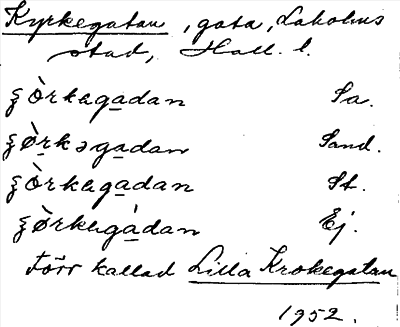 Kyrkegatan, gata, Laholms
stad, Hall. l.
ʂòrkegadan Sa.
ʂø̀rkəgadan Sand.
ʂòrkegadan St.
ʂø̀rkegadan Ej.
Förr kallad Lilla Krokegatan
1952.